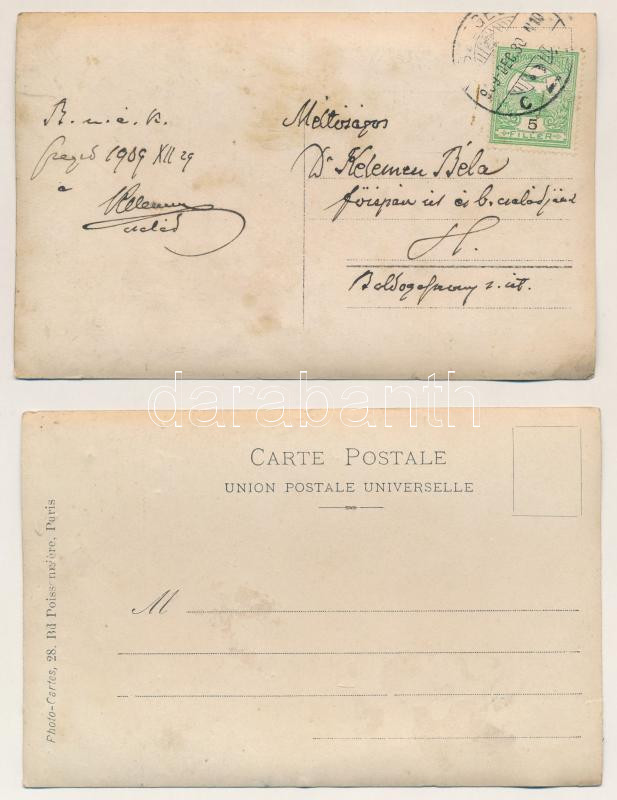 B. u. é. k.
Szeged 1909 XII 29
a
Kelemen
család
Méltóságos
Dr Kelemen Béla
főispán úr és b. családjának
H.
Boldogasszony s. út.
909 DEC. 30
C
5
FILLER
darabanth
CARTE POSTALE
UNION POSTALE UNIVERSELLE
Photo-Cartes, 28. Bd Poissonnière, Paris
M